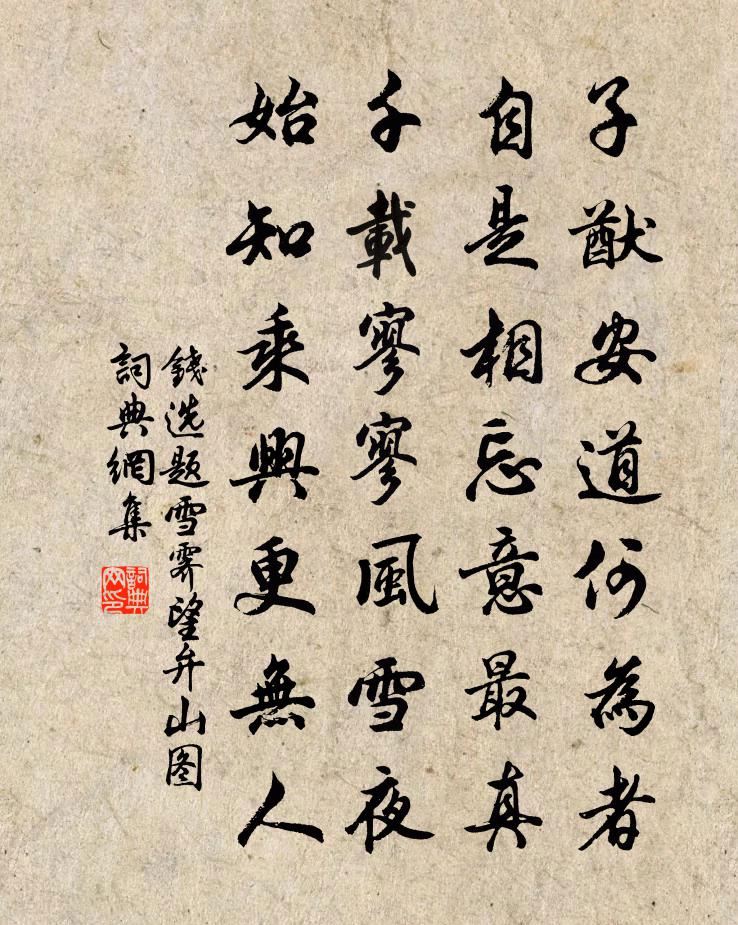 子猷安道何為者
自是相忘意最真
千載寥寥風雪夜
始知乘興更無人
錢选题雪霽望弁山图
詞典網集
詞典
网印